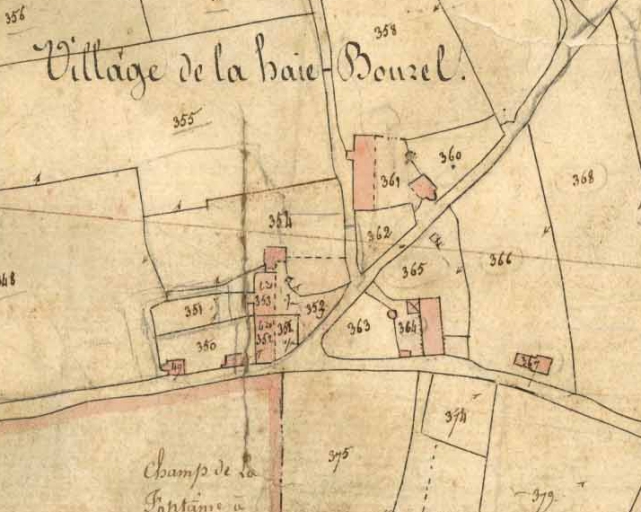 356
358
Village de la haie-Bourel.
355
360
361
368
354
362
366
365
353
351
352
363
364
350
367
374
375
Champ de La
Fontaine à
379